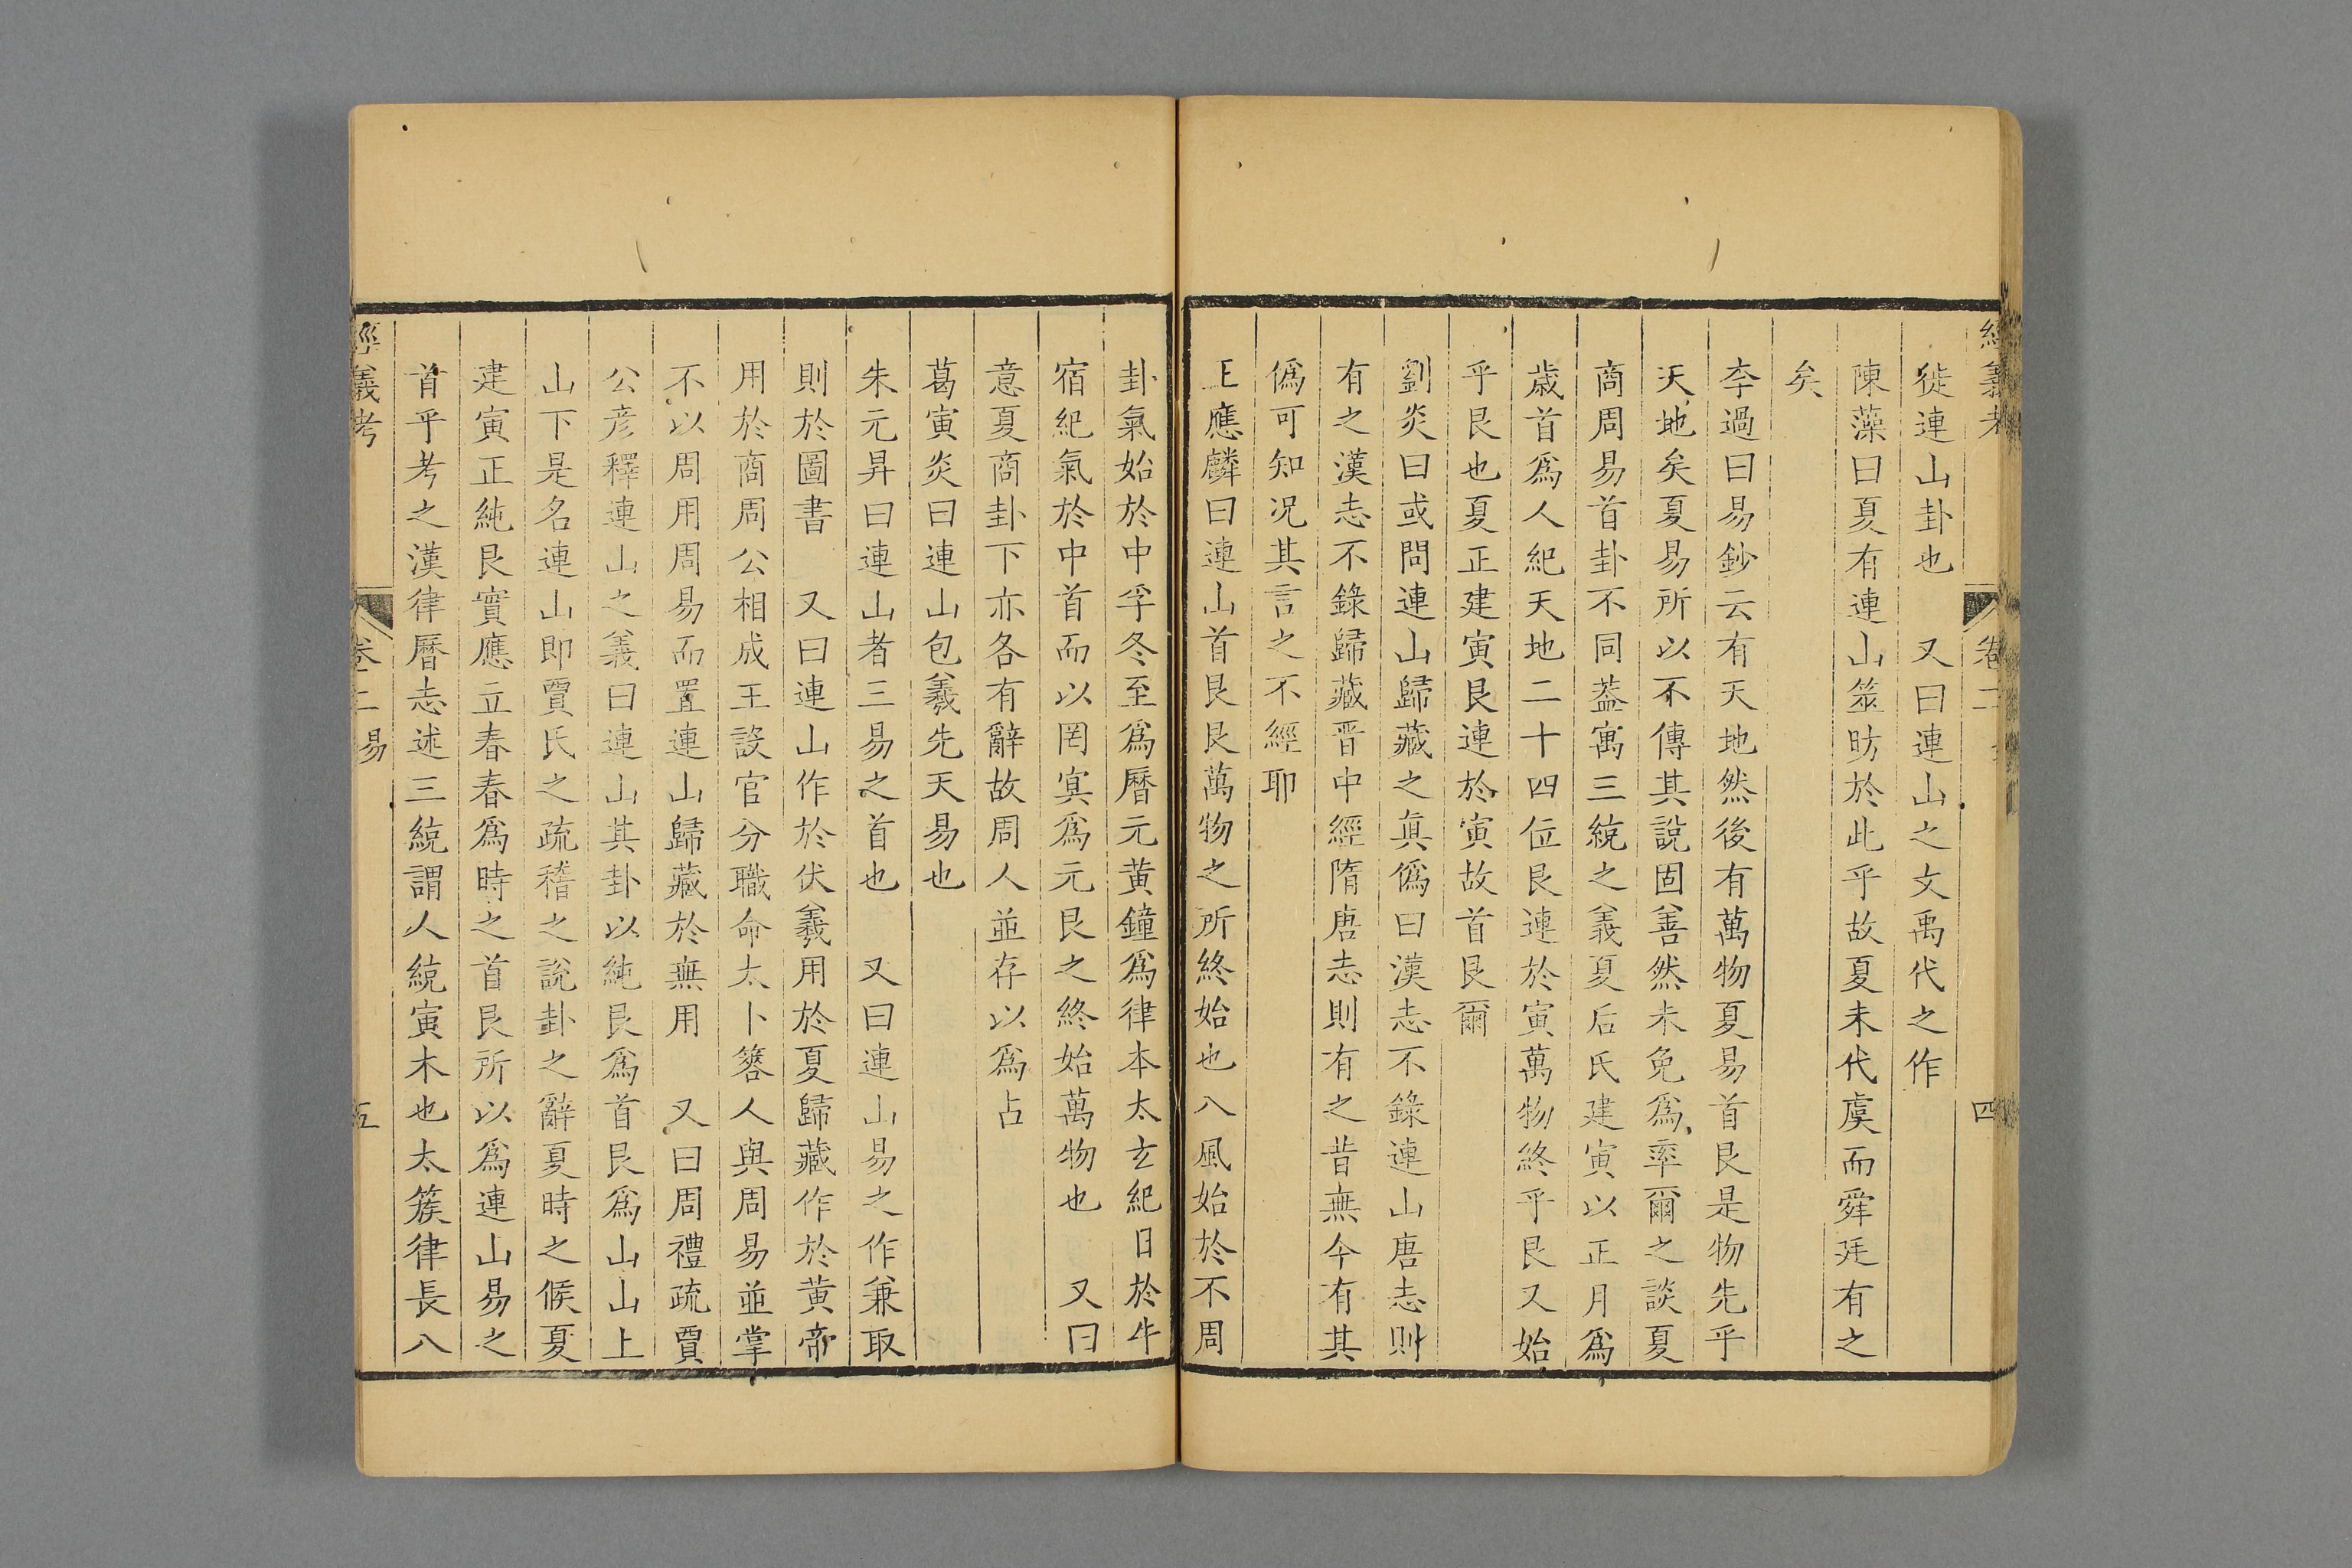 經義考 卷二 四
徙連山卦也 又曰連山之文禹代之作
陳藻曰夏有連山筮昉於此乎故夏未代虞而舜廷有之
矣
李過曰易鈔云有天地然後有萬物夏易首艮是物先乎
天地矣夏易所以不傳其說固善然未免爲率爾之談夏
商周易首卦不同葢寓三統之義夏后氏建寅以正月爲
歳首爲人紀天地二十四位艮連於寅萬物終乎艮又始
乎艮也夏正建寅艮連於寅故首艮爾
劉炎曰或問連山歸藏之眞僞曰漢志不錄連山唐志則
有之漢志不錄歸藏晋中經隋唐志則有之昔無今有其
僞可知况其言之不經耶
王應麟曰連山首艮艮萬物之所終始也八風始於不周
卦氣始於中孚冬至爲曆元黄鐘爲律本太玄紀日於牛
宿紀氣於中首而以罔冥爲元艮之終始萬物也 又曰
意夏商卦下亦各有辭故周人並存以爲占
葛寅炎曰連山包羲先天易也
朱元昇曰連山者三易之首也 又曰連山易之作兼取
則於圖書 又曰連山作於伏羲用於夏歸藏作於黄帝
用於商周公相成王設官分職命太卜簭人與周易並掌
不以周用周易而置連山歸藏於無用 又曰周禮疏賈
公彦釋連山之義曰連山其卦以純艮爲首艮爲山山上
山下是名連山即賈氏之疏稽之說卦之辭夏時之候夏
建寅正純艮實應立春春爲時之首艮所以爲連山易之
首乎考之漢律曆志述三統謂人統寅木也太簇律長八
經義考 卷二 易 五